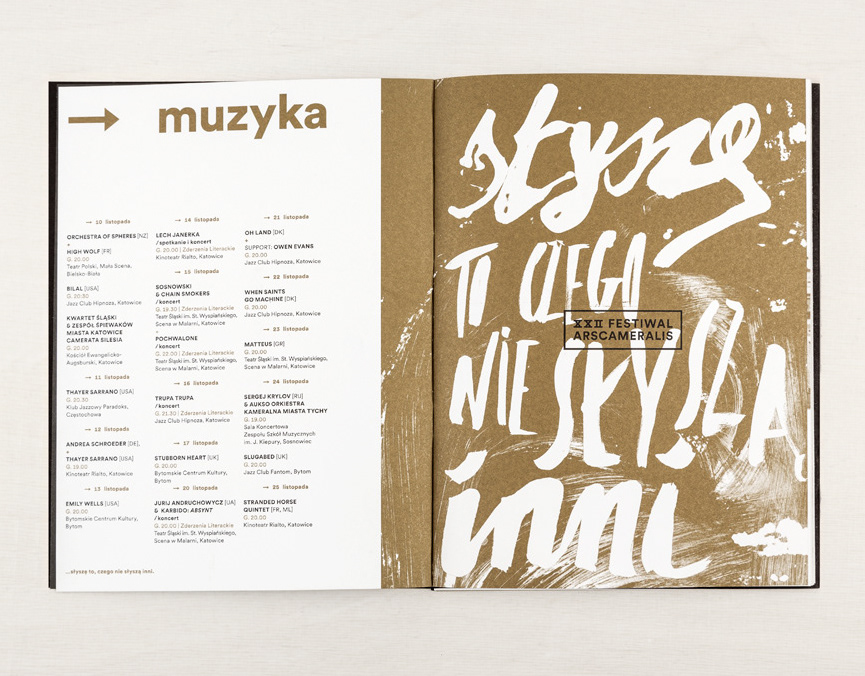 → muzyka
→ 10 listopada
ORCHESTRA OF SPHERES [NZ]
+
HIGH WOLF [FR]
G. 20.00
Teatr Polski, Mała Scena,
Bielsko-Biała
BILAL [USA]
G. 20:30
Jazz Club Hipnoza, Katowice
KWARTET ŚLĄSKI
& ZESPÓŁ ŚPIEWAKÓW
MIASTA KATOWICE
CAMERATA SILESIA
G. 20.00
Kościół Ewangelicko-
Augsburski, Katowice
→ 11 listopada
THAYER SARRANO [USA]
G. 20.30
Klub Jazzowy Paradoks,
Częstochowa
→ 12 listopada
ANDREA SCHROEDER [DE],
+
THAYER SARRANO [USA]
G. 19.00
Kinoteatr Rialto, Katowice
→ 13 listopada
EMILY WELLS [USA]
G. 20.00
Bytomskie Centrum Kultury,
Bytom
→ 14 listopada
LECH JANERKA
/spotkanie i koncert
G. 20.00 | Zderzenia Literackie
Kinoteatr Rialto, Katowice
→ 15 listopada
SOSNOWSKI
& CHAIN SMOKERS
/koncert
G. 19.30 | Zderzenia Literackie
Teatr Śląski im. St. Wyspiańskiego,
Scena w Malarni, Katowice
+
POCHWALONE
/koncert
G. 22.00 | Zderzenia Literackie
Teatr Śląski im. St. Wyspiańskiego,
Scena w Malarni, Katowice
→ 16 listopada
TRUPA TRUPA
/koncert
G. 21.30 | Zderzenia Literackie
Jazz Club Hipnoza, Katowice
→ 17 listopada
STUBBORN HEART [UK]
G. 20.00
Bytomskie Centrum Kultury,
Bytom
→ 20 listopada
JURIJ ANDRUCHOWYCZ [UA]
& KARBIDO: ABSYNT
/koncert
G. 20.00 | Zderzenia Literackie
Teatr Śląski im. St. Wyspiańskiego,
Scena w Malarni, Katowice
→ 21 listopada
OH LAND [DK]
+
SUPPORT: OWEN EVANS
G. 20.00
Jazz Club Hipnoza, Katowice
→ 22 listopada
WHEN SAINTS
GO MACHINE [DK]
G. 20.00
Jazz Club Hipnoza, Katowice
→ 23 listopada
MATTEUS [GR]
G. 20.00
Teatr Śląski im. St. Wyspiańskiego,
Scena w Malarni, Katowice
→ 24 listopada
SERGEJ KRYLOV [RU]
& AUKSO ORKIESTRA
KAMERALNA MIASTA TYCHY
G. 19.00
Sala Koncertowa
Zespołu Szkół Muzycznych
im. J. Kiepury, Sosnowiec
SLUGABED [UK]
G. 20.00
Jazz Club Fantom, Bytom
→ 25 listopada
STRANDED HORSE
QUINTET [FR, ML]
G. 20.00
Kinoteatr Rialto, Katowice
...słyszę to, czego nie słyszą inni.
słyszę
TO CZEGO
XXII FESTIWAL
ARSCAMERALIS
NIE SŁYSZĄ
inni